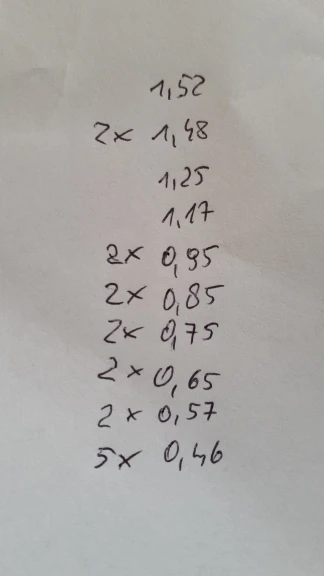 1,52
2x 1,48
1,25
1,17
2x 0,95
2x 0,85
2x 0,75
2x 0,65
2x 0,57
5x 0,46